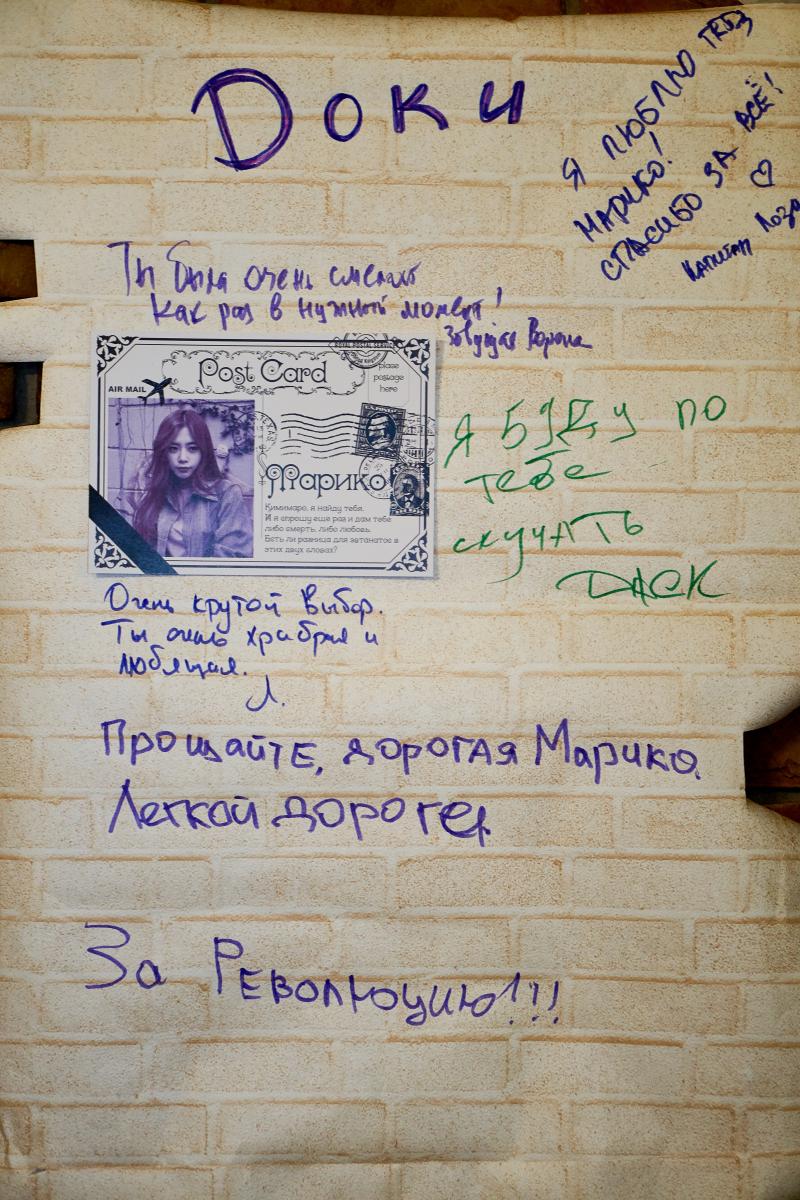 Доки
Я ЛЮБЛЮ ТЕБЯ
МАРИКО!
СПАСИБО ЗА ВСЁ!
КАПИТАН Лоза
Ты была очень смелой
как раз в нужный момент!
Зовущая Ворона
Post Card
AIR MAIL
please
postage
here
Марико
Кимимаро, я найду тебя.
И я спрошу еще раз и дам тебе
либо смерть, либо любовь.
Есть ли разница для эвтанатос в
этих двух словах?
Я БУДУ ПО
тебе
скучАТЬ
ДАСК
Очень крутой выбор.
Ты очень храбрая и
любящая.
Л.
Прощайте, дорогая Марико.
Легкой дороге
За Революцию!!!